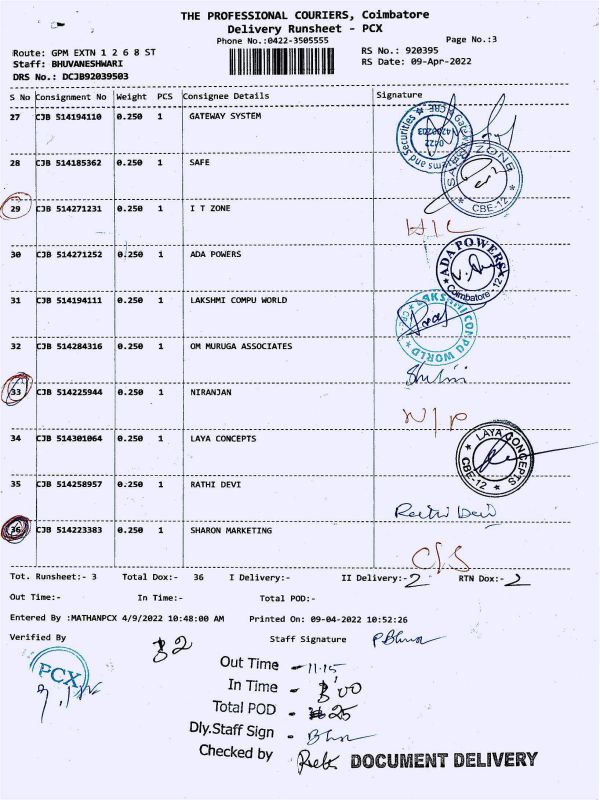 THE PROFESSIONAL COURIERS, Coimbatore
Delivery Runsheet - PCX
Phone No.:0422-3505555
Page No.:3
Route: GPM EXTN 1 2 6 8 ST
RS No.: 920395
Staff: BHUVANESHWARI
RS Date: 09-Apr-2022
DRS No.: DCJB92039503
S No Consignment No Weight PCS Consignee Details Signature
27 CJB 514194110 0.250 1 GATEWAY SYSTEM
28 CJB 514185362 0.250 1 SAFE
SAFE ZONE CBE-12
29 CJB 514271231 0.250 1 I T ZONE
30 CJB 514271252 0.250 1 ADA POWERS
ADA POWERS Coimbatore - 12
31 CJB 514194111 0.250 1 LAKSHMI COMPU WORLD
LAKSHMI COMPU WORLD
32 CJB 514284316 0.250 1 OM MURUGA ASSOCIATES
33 CJB 514225944 0.250 1 NIRANJAN
N/P
34 CJB 514301064 0.250 1 LAYA CONCEPTS
LAYA CONCEPTS CBE-12
35 CJB 514258957 0.250 1 RATHI DEVI
Rathi Devi
36 CJB 514223383 0.250 1 SHARON MARKETING
Tot. Runsheet:- 3 Total Dox:- 36 I Delivery:- II Delivery:- 2 RTN Dox:- 2
Out Time:- In Time:- Total POD:-
Entered By :MATHANPCX 4/9/2022 10:48:00 AM Printed On: 09-04-2022 10:52:26
Verified By Staff Signature
PCX
Out Time - 11.15
In Time -
Total POD - 25
Dly.Staff Sign -
Checked by
DOCUMENT DELIVERY